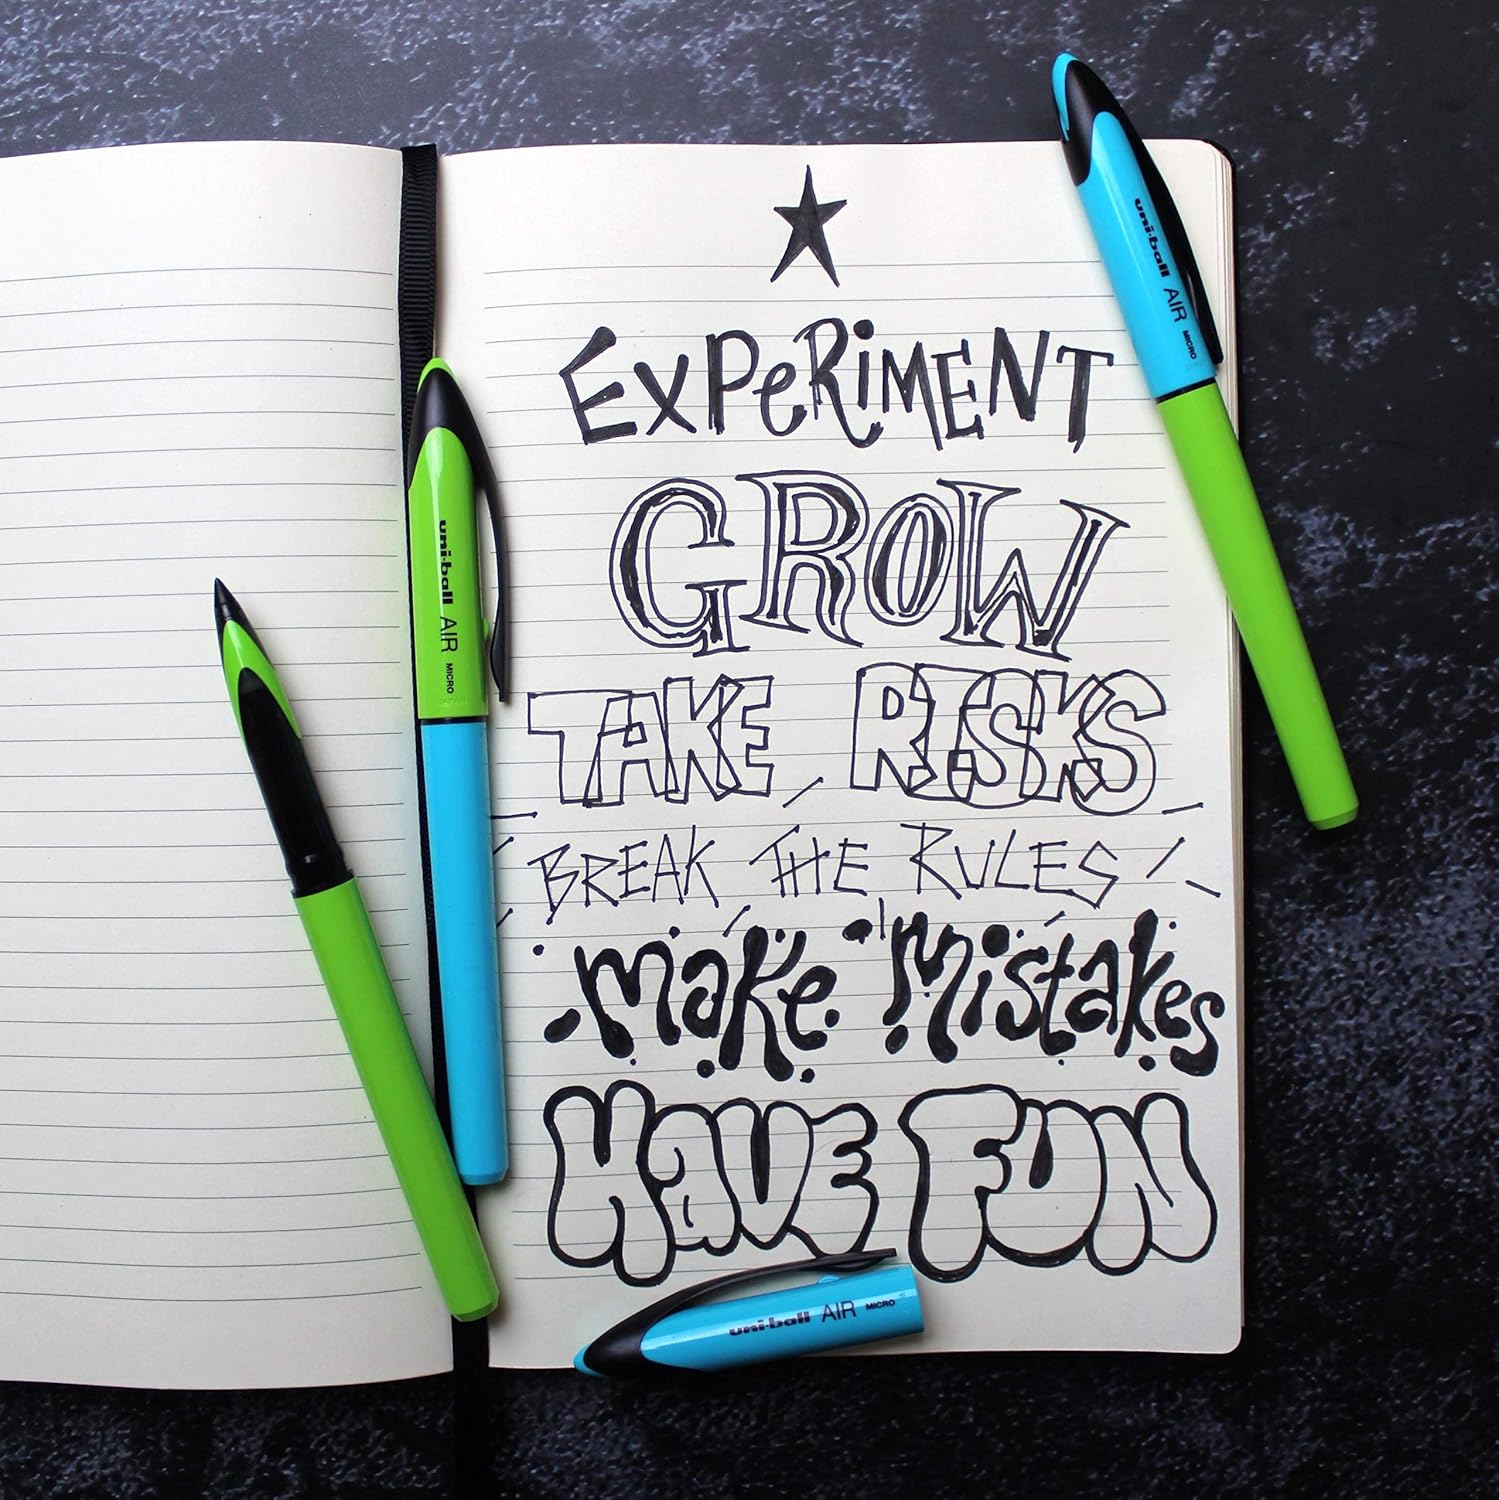 EXPeRiMENT
GROW
TAKE RISKS
BREAK THE RULES
Make Mistakes
HaVE FUN
uni-ball AIR MICRO
uni-ball AIR MICRO
JAPAN
uni-ball AIR MICRO